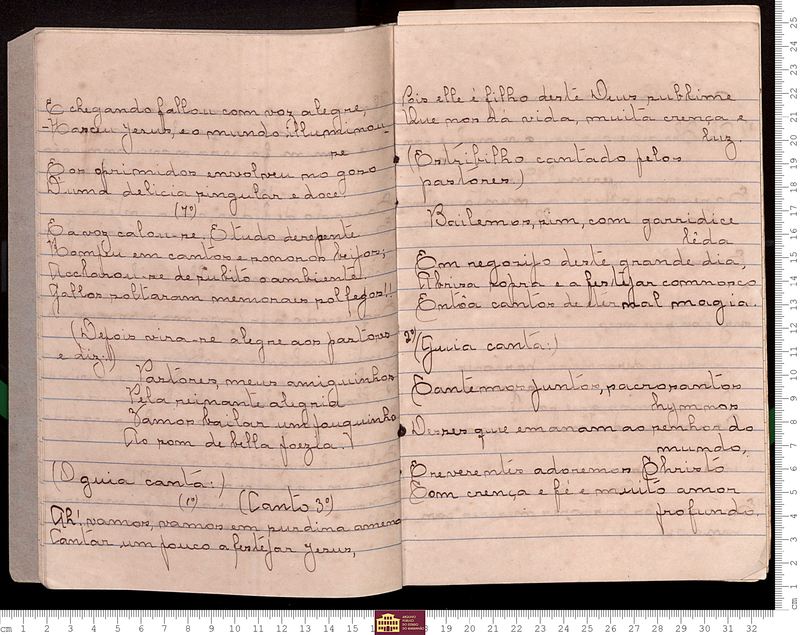 E chegando fallou com voz alegre,
-Nasceu Jesus, e o mundo illuminou-
se
E os oprimidos envolveu no goso
D'uma delicia singular e doce
(7º)
E a voz calou-se. E tudo derepente
Rompeu em cantos e sonoros beijos;
Acclarou-se de subito o ambiente
Gallos soltaram memoraes solfegos!!
(Depois vira-se alegre aos pastores
e diz:)
Pastores, meus amiguinhos
Pela reinante alegria
Vamos bailar um pouquinho
Ao som de bella poezia.
(O guia canta:)
(1º) (Canto 3º)
Ah! vamos, vamos em surdina amena
Cantar um pouco a festejar Jesus,
Pois elle é filho deste Deus sublime
Que nos da vida, muita crença e
luz.
(Estribilho cantado pelos
pastores.)
Bailemos, sim, com garridice
lêda
Em regosijo deste grande dia,
A brisa sopra e a festejar comnosco
Entôa cantos de eternal magia.
2º (Guia canta:)
Cantemos juntos, sacrosantos
hymnos
Desses que emanam ao senhor do
mundo,
E reverentes adoremos Christo
Com crença e fé e muito amor
profundo.
cm 1 2 3 4 5 6 7 8 9 10 11 12 13 14 15
ARQUIVO
PÚBLICO
DO ESTADO
DO MARANHÃO
18 19 20 21 22 23 24 25 26 27 28 29 30 31 32
cm 1 2 3 4 5 6 7 8 9 10 11 12 13 14 15 16 17 18 19 20 21 22 23 24 25